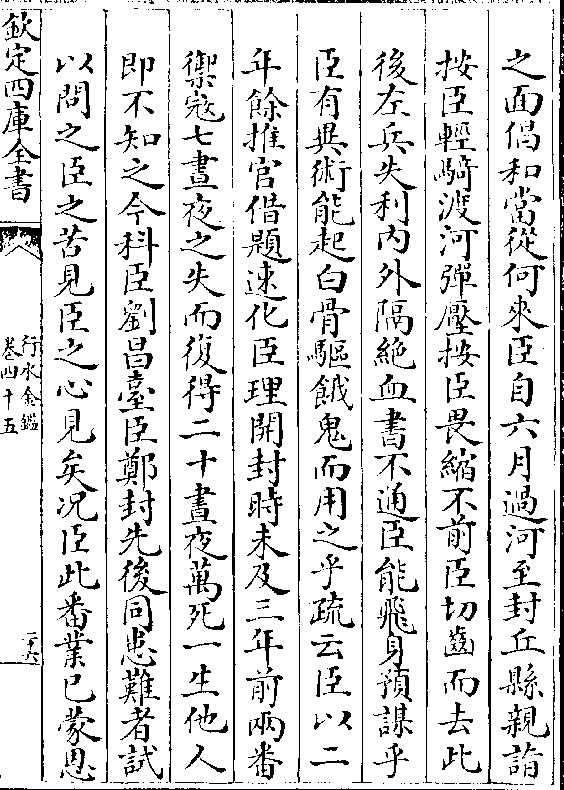 之面倡和當從何來臣自六月過河至封丘縣親詣
按臣輕騎渡河彈壓按臣畏縮不前臣切齒而去此
後左兵失利內外隔絶血書不通臣能飛身預謀乎
臣有異術能起白骨驅餓鬼而用之乎疏云臣以二
年餘推官借題速化臣理開封時未及三年前兩番
禦宼七晝夜之失而復得二十晝夜萬死一生他人
即不知之今科臣劉昌臺臣鄭封先後同患難者試
以問之臣之苦見臣之心見矣况臣此番業已蒙恩
欽定四庫全書
行水金鑑
卷四十五
二十六